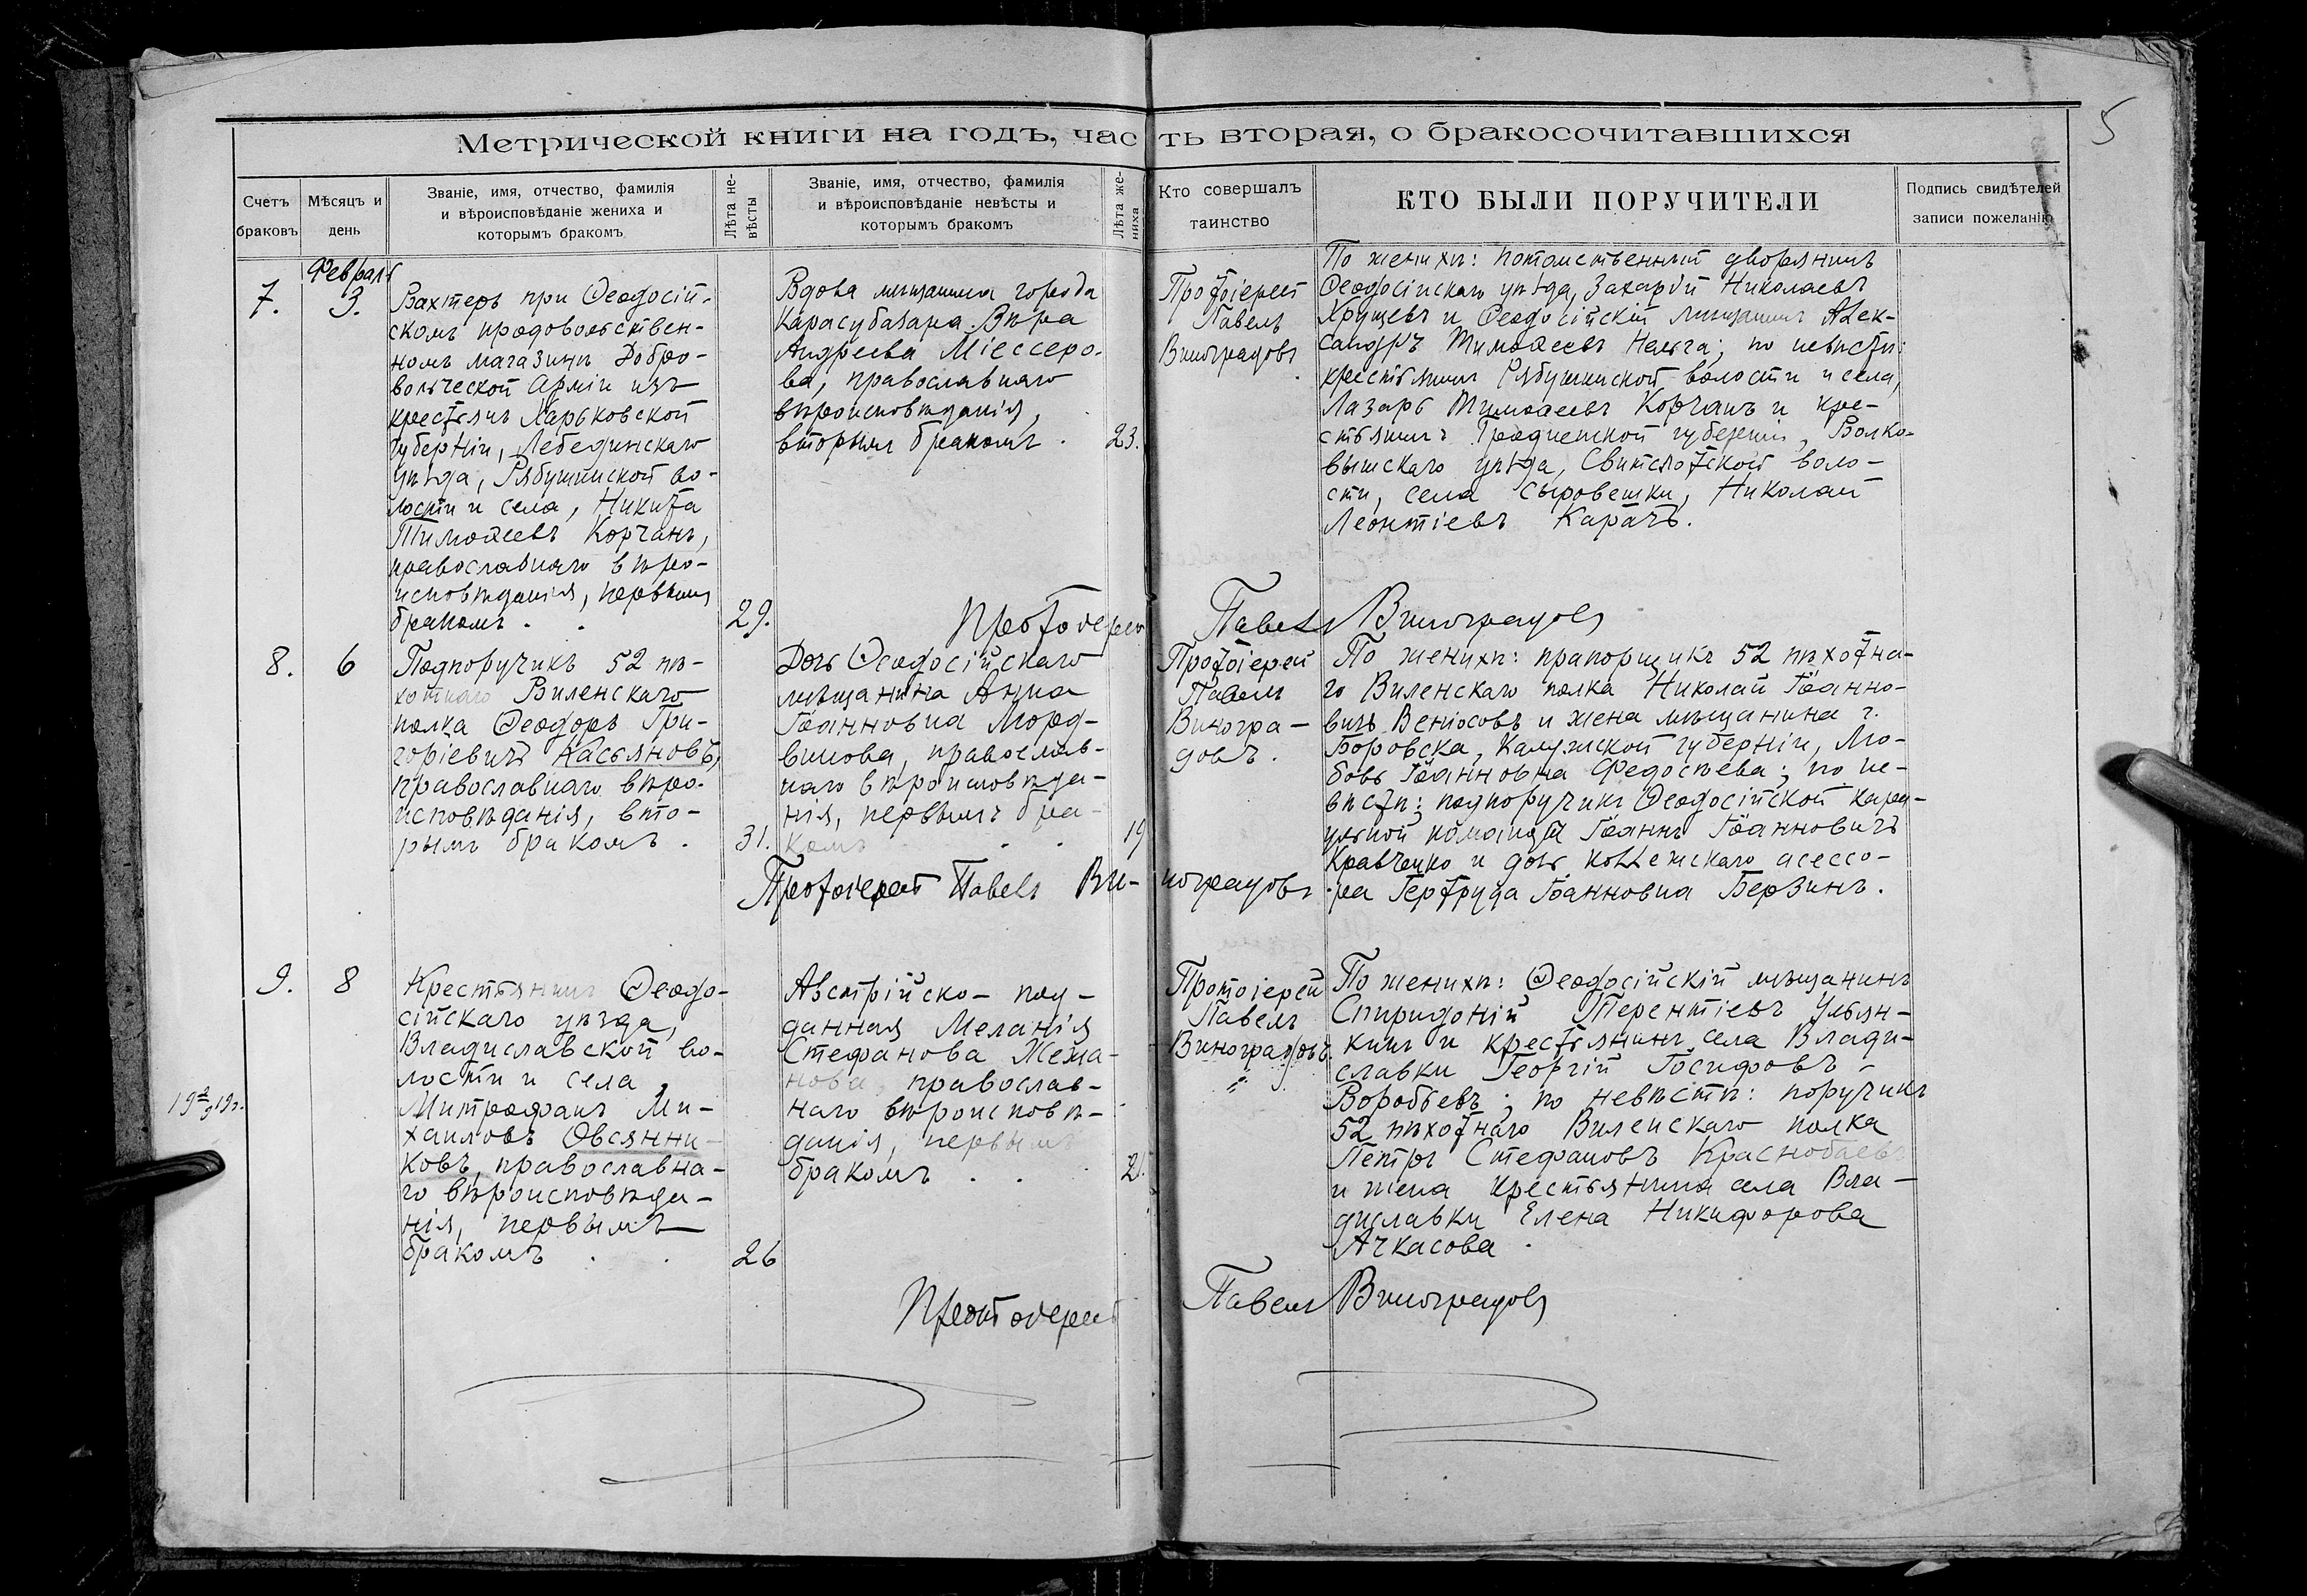 Метрической книги на годъ, часть вторая, о бракосочитавшихся
5
Счетъ браковъ
Мѣсяцъ и день
Званіе, имя, отчество, фамилія
и вѣроисповѣданіе жениха и
которымъ бракомъ
Лѣта невѣсты
Званіе, имя, отчество, фамилія
и вѣроисповѣданіе невѣсты и
которымъ бракомъ
Лѣта жениха
Кто совершалъ
таинство
КТО БЫЛИ ПОРУЧИТЕЛИ
Подпись свидѣтелей
записи пожеланію
Февраль
7.
3.
Вахтеръ при Ѳеодосій-
скомъ продовольствен-
номъ магазинѣ Добро-
вольческой Арміи изъ
крестьянъ Харьковской
губерніи, Лебединскаго
уѣзда, Рябушкиской во-
лости и села, Никита
Тимоѳеевъ Корчанъ,
православнаго вѣро-
исповѣданія, первымъ
бракомъ . .
29.
Вдова мѣщанина города
Карасубазара Вѣра
Андреева Міессеро-
ва, православнаго
вѣроисповѣданія,
вторымъ бракомъ .
23.
Протоіерей
Павелъ
Виноградовъ
По женихѣ: потомственный дворянинъ
Ѳеодосійскаго уѣзда, Захарій Николаевъ
Хрущевъ и Ѳеодосійскій мѣщанинъ Алек-
сандръ Тимоѳеевъ ; по невѣстѣ:
крестьянинъ Рябушкиской волости и села,
Лазарь Тимоѳеевъ Корчанъ и кре-
стьянинъ Гродненской губерніи, Волко-
вышскаго уѣзда, Свислотской воло-
сти, села Сыровешки, Николай
Леонтіевъ Карачъ.
Протоіерей Павелъ Виноградовъ
8.
6
Подпоручикъ 52 пѣ-
хотнаго Виленскаго
полка Ѳеодоръ Гри-
горіевичъ Касьяновъ,
православнаго вѣро-
исповѣданія, вто-
рымъ бракомъ .
31.
Дочь Ѳеодосійскаго
мѣщанина Анна
Іоанновна Морд-
винова, православ-
наго вѣроисповѣда-
нія, первымъ бра-
комъ . . .
19
Протоіерей
Павелъ
Виногра-
довъ.
По женихѣ: прапорщикъ 52 пѣхотна-
го Виленскаго полка Николай Іоанно-
вичъ Веніосовъ и жена мѣщанина г.
Боровска, Калужской губерніи, Лю-
бовь Іоанновна Федосѣева; по не-
вѣстѣ: подпоручикъ Ѳеодосійской карау-
льной команды Іоаннъ Іоанновичъ
Кравченко и дочь коллежскаго асессо-
ра Гертруда Іоанновна Берзинъ.
Протоіерей Павелъ Ви-
ноградовъ
9.
8
1919г.
Крестьянинъ Ѳеодо-
сійскаго уѣзда,
Владиславской во-
лости и села,
Митрофанъ Ми-
хаиловъ Овсянни-
ковъ, православна-
го вѣроисповѣда-
нія, первымъ
бракомъ . .
26
Австрійско-под-
данная Меланія
Стефанова
православ-
наго вѣроисповѣ-
данія, первымъ
бракомъ . . .
Протоіерей
Павелъ
Виноградовъ.
По женихѣ: Ѳеодосійскій мѣщанинъ
Спиридоній Терентіевъ Ульян-
кинъ и крестьянинъ села Влади-
славки Георгій Іосифовъ
Воробьевъ; по невѣстѣ: поручикъ
52 пѣхотнаго Виленскаго полка
Петръ Стефановъ Краснобаевъ
и жена крестьянина села Вла-
диславки Елена Никифорова
Ачкасова.
Протоіерей Павелъ Виноградовъ